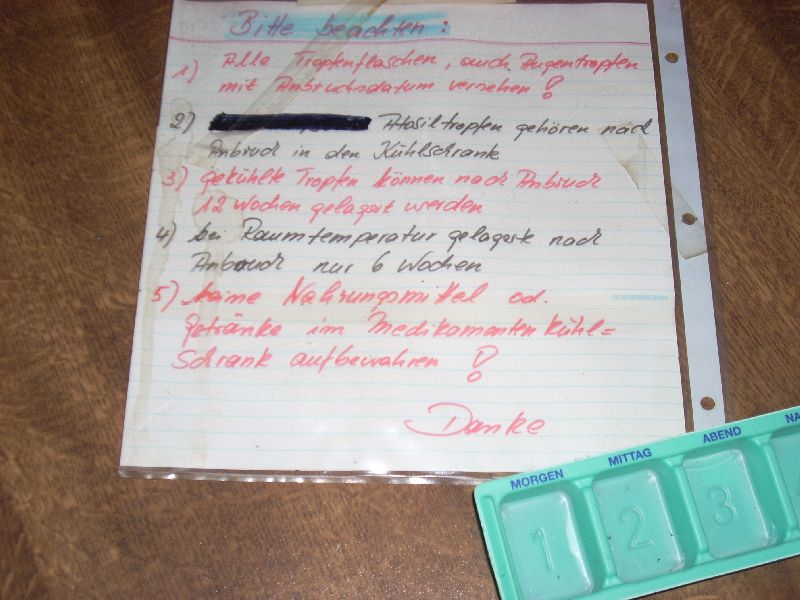 Bitte beachten:
1) Alle Tropfenflaschen, auch Augentropfen
mit Anbruchsdatum versehen!
2) Atosiltropfen gehören nach
Anbruch in den Kühlschrank
3) gekühlte Tropfen können nach Anbruch
12 Wochen gelagert werden
4) bei Raumtemperatur gelagerte nach
Anbruch nur 6 Wochen
5) keine Nahrungsmittel od.
Getränke im Medikamentenkühl=
schrank aufbewahren!
Danke
SOENNECKEN
MORGEN MITTAG ABEND NA
1 2 3